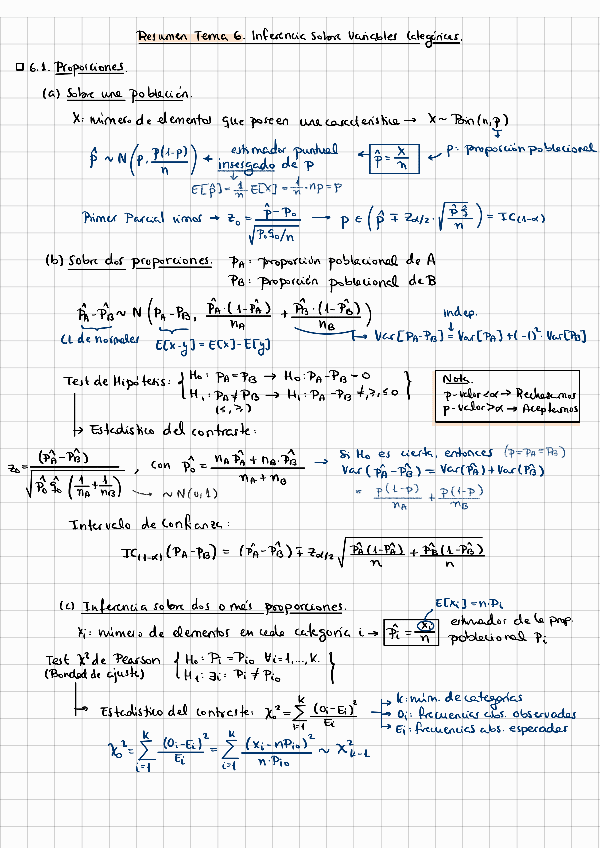 Resumen Tema 6. Inferencia sobre Variables Categóricas.
6.1. Proporciones.
(a) Sobre una población.
X: número de elementos que poseen una característica → X ~ Bin(n,p)
p̂ ~ N(p, p(1-p)/n) → estimador puntual insesgado de p ← p̂ = X/n ← p: proporción poblacional
E[p̂] = 1/n E[X] = 1/n · np = p
Primer Parcial vimos → z₀ = (p̂ - p₀)/√(p₀q₀/n) → p ∈ (p̂ ∓ z_{α/2} · √(p̂q̂/n)) = IC(1-α)
(b) Sobre dos proporciones. pA: proporción poblacional de A
pB: proporción poblacional de B
p̂A - p̂B ~ N(pA - pB, p̂A·(1-p̂A)/nA + p̂B·(1-p̂B)/nB) indep.
CL de normales E[x-y] = E[x] - E[y] → Var[pA-pB] = Var[pA] + (-1)²·Var[pB]
Test de Hipótesis: { H₀: pA = pB → H₀: pA - pB = 0
H₁: pA ≠ pB → H₁: pA - pB ≠, >, ≤ 0 }
(<, >)
Nota.
p-valor < α → Rechazamos
p-valor > α → Aceptamos
→ Estadístico del contraste:
z₀ = (p̂A - p̂B)/√(p̂₀ q̂₀ (1/nA + 1/nB)), con p̂₀ = (nA p̂A + nB·p̂B)/(nA + nB) → Si H₀ es cierta, entonces (p = pA = pB)
Var(p̂A - p̂B) = Var(p̂A) + Var(p̂B)
→ ~ N(0,1) = p(1-p)/nA + p(1-p)/nB
Intervalo de Confianza:
IC(1-α)(pA - pB) = (p̂A - p̂B) ∓ z_{α/2} √(p̂A(1-p̂A)/n + p̂B(1-p̂B)/n)
(c) Inferencia sobre dos o más proporciones. E[xi] = n·Pi
xi: número de elementos en cada categoría i → p̂i = xi/n estimador de la prop. poblacional pi
Test χ² de Pearson { H₀: Pi = Pi₀ ∀i = 1,..., K.
(Bondad de ajuste) H₁: ∃i: Pi ≠ Pi₀ }
→ Estadístico del contraste: χ₀² = Σ_{i=1}^{K} (Oi - Ei)²/Ei → K: núm. de categorías
→ Oi: frecuencias abs. observadas
→ Ei: frecuencias abs. esperadas
χ₀² = Σ_{i=1}^{K} (Oi - Ei)²/Ei = Σ_{i=1}^{K} (xi - nPi₀)²/n·Pi₀ ~ χ²_{K-1}